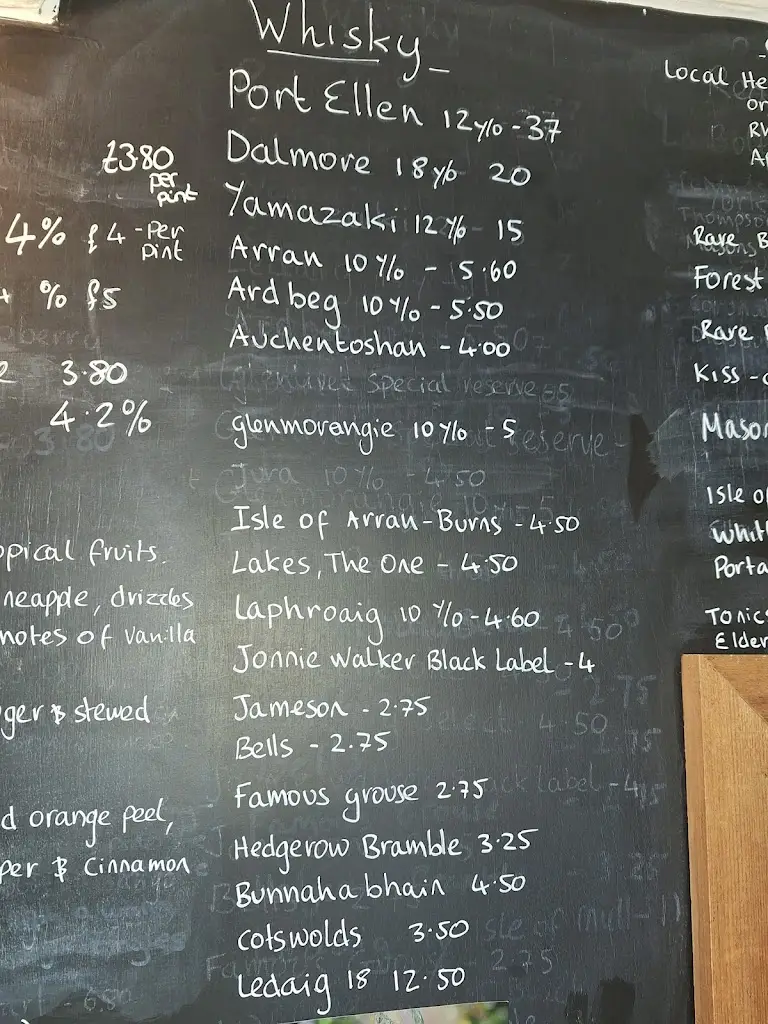 Whisky
Port Ellen 12y/o - 37
Dalmore 18y/o 20
Yamazaki 12 y/o - 15
Arran 10 y/o - 5.60
Ardbeg 10 y/o - 5.50
Auchentoshan - 4.00
glenmorangie 10 y/o - 5
Jura 10 y/o - 4.50
Isle of Arran - Burns - 4.50
Lakes, The One - 4.50
Laphroaig 10 y/o - 4.60
Jonnie Walker Black Label - 4
Jameson - 2.75
Bells - 2.75
Famous grouse 2.75
Hedgerow Bramble 3.25
Bunnahabhain 4.50
Cotswolds 3.50
Ledaig 18 12.50
£3.80
per
pint
4% £4 - Per
pint
% £5
3.80
4.2%
fruits.
drizzles
notes of vanilla
& stewed
orange peel,
& Cinnamon
Local
Rare
Forest
Rare
Kiss
Isle of